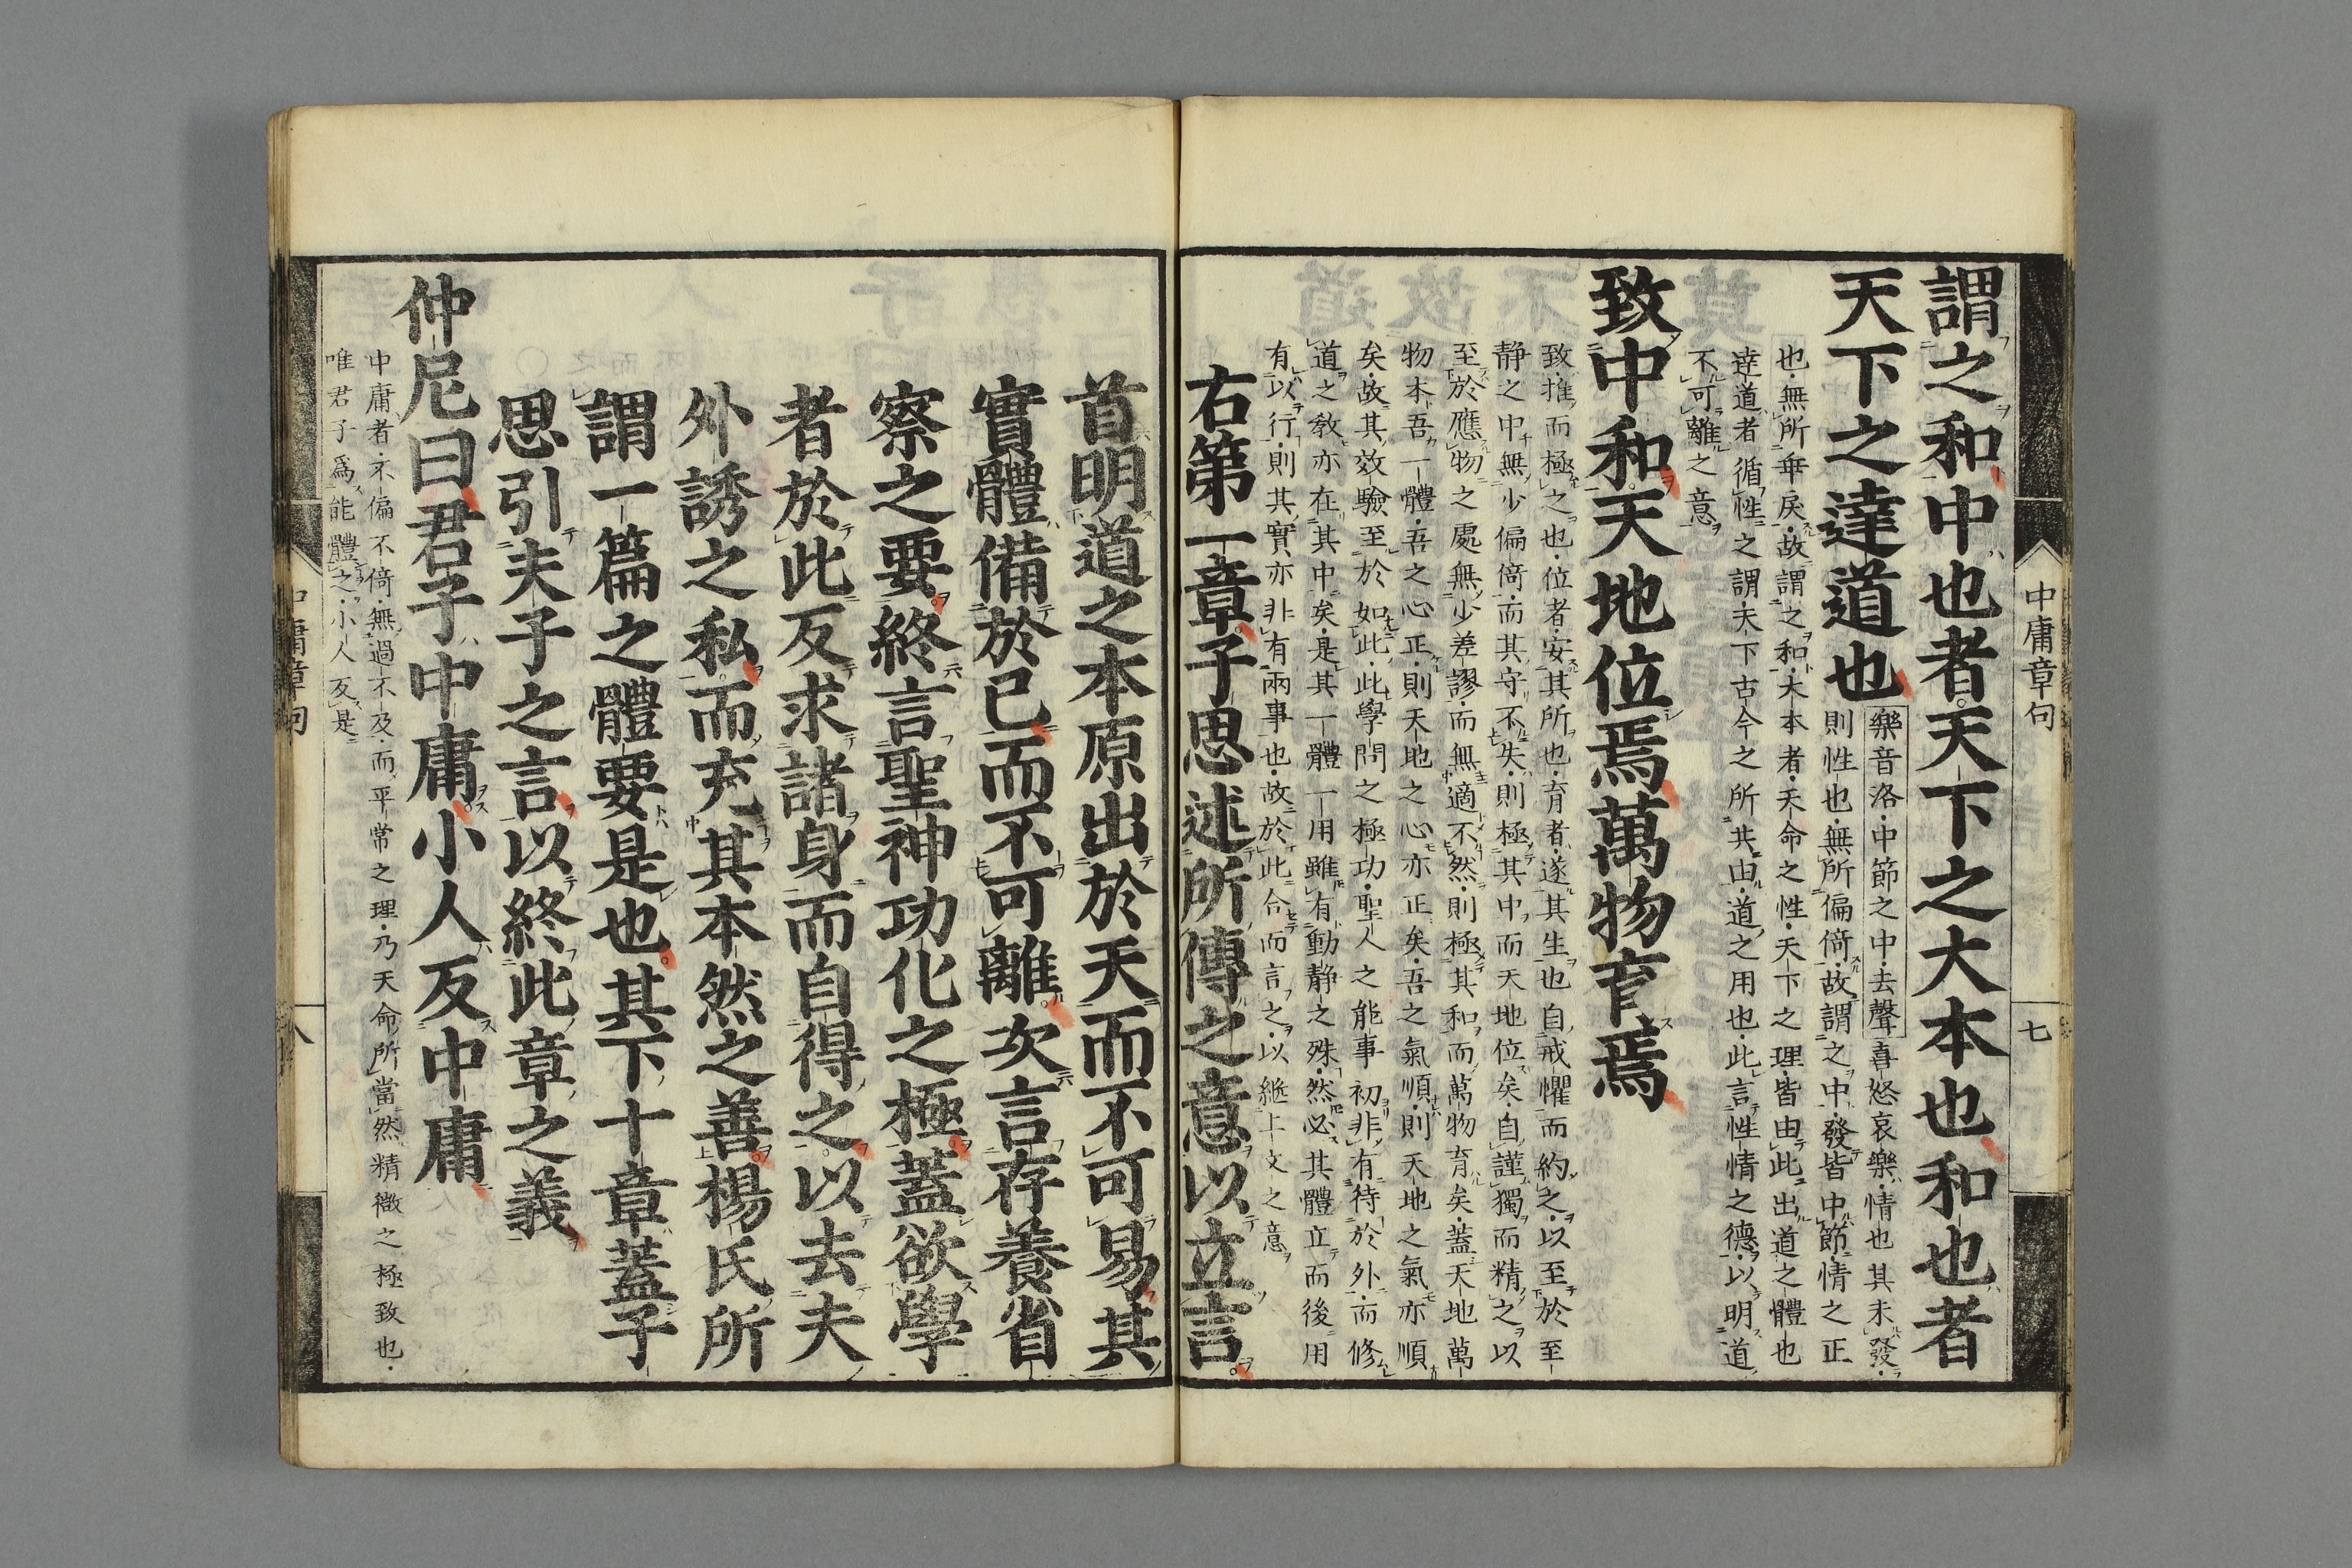 中庸章句
七
謂之和中也者天下之大本也和也者
天下之達道也
樂音洛中節之中去聲喜怒哀樂情也其未發
則性也無所偏倚故謂之中發皆中節情之正
也無所乖戾故謂之和大本者天命之性天下之理皆由此出道之體也
達道者循性之謂天下古今之所共由道之用也此言性情之德以明道
不可離之意
致中和天地位焉萬物育焉
致推而極之也位者安其所也育者遂其生也自戒懼而約之以至於至
静之中無少偏倚而其守不失則極其中而天地位矣自謹獨而精之以
至於應物之處無少差謬而無適不然則極其和而萬物育矣蓋天地萬
物本吾一體吾之心正則天地之心亦正矣吾之氣順則天地之氣亦順
矣故其效驗至於如此此學問之極功聖人之能事初非有待於外而修
道之教亦在其中矣是其一體一用雖有動静之殊然必其體立而後用
有以行則其實亦非有兩事也故於此合而言之以結上文之意
右第一章子思述所傳之意以立言
首明道之本原出於天而不可易其
實體備於已而不可離次言存養省
察之要終言聖神功化之極蓋欲學
者於此反求諸身而自得之以去夫
外誘之私而充其本然之善楊氏所
謂一篇之體要是也其下十章蓋子
思引夫子之言以終此章之義
仲尼曰君子中庸小人反中庸
中庸者不偏不倚無過不及而平常之理乃天命所當然精微之極致也
唯君子爲能體之小人反是
中庸章句
八